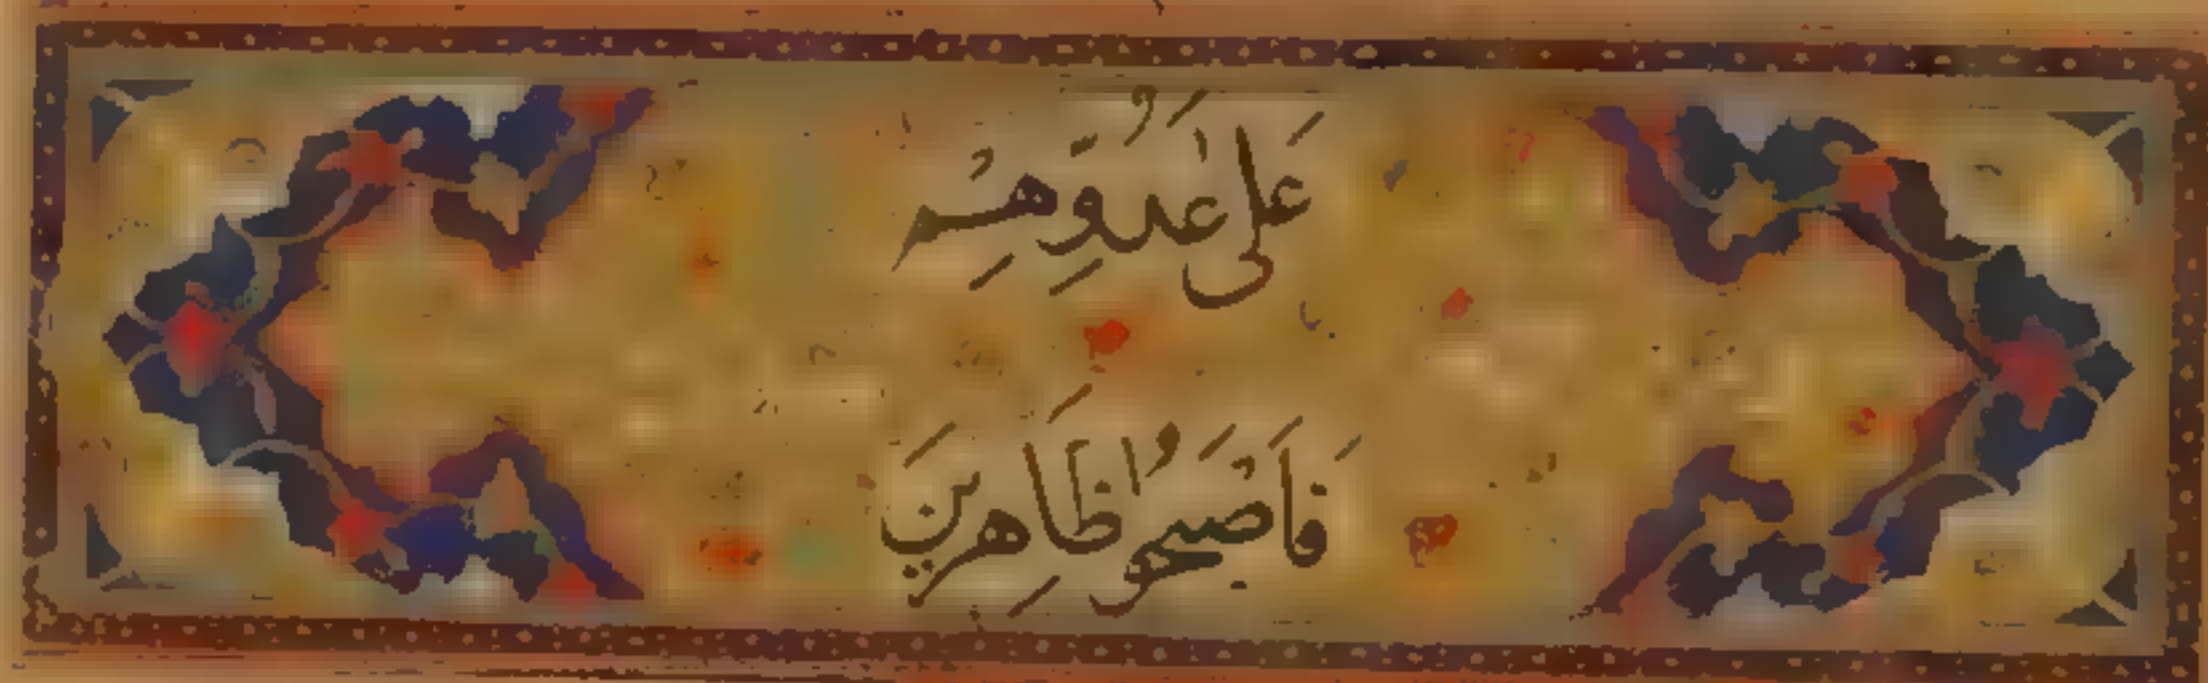 عَلٰى عَدُوِّهِمْ
فَاَصْبَحُوْا ظَاهِرِينَ